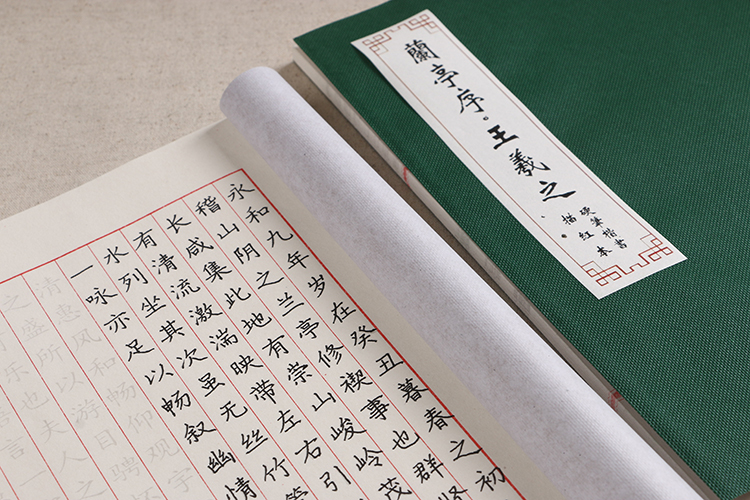 蘭亭序。王羲之
硬筆楷書
描红本
永和九年岁在癸丑暮春之初
稽山阴之兰亭修禊事也群贤
长咸集此地有崇山峻岭茂
有清流激湍映带左右引
水列坐其次虽无丝竹管
一咏亦足以畅叙幽情
清惠风和畅仰观宇
之盛所以目骋
乐也夫人之
言一